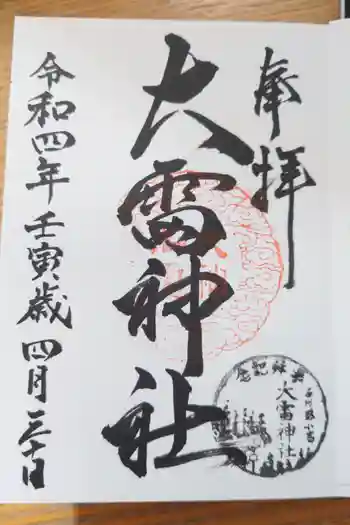 奉拝
大雷神社
令和四年壬寅歳四月三十日
大雷神社